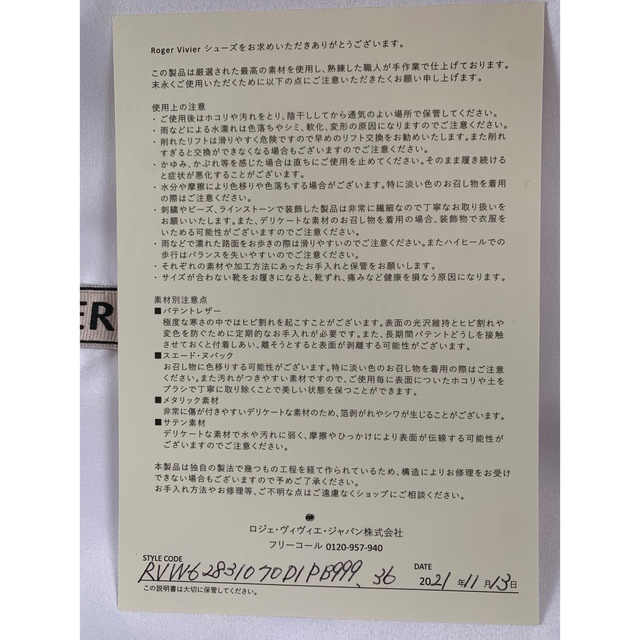 Roger Vivier シューズをお求めいただきありがとうございます。
この製品は厳選された最高の素材を使用し、熟練した職人が手作業で仕上げております。
末永くご使用いただくために以下の点にご注意いただきたくお願い申し上げます。
使用上の注意
・ご使用後はホコリや汚れをとり、陰干ししてから通気のよい場所で保管してください。
・雨などによる水濡れは色落ちやシミ、軟化、変形の原因になりますのでご注意ください。
・削れたリフトは滑りやすく危険ですので早めのリフト交換をお勧めいたします。また削れ
すぎると交換ができなくなる場合もございますのでご注意ください。
・かゆみ、かぶれ等を感じた場合は直ちにご使用を止めてください。そのまま履き続ける
と症状が悪化することがございます。
・水分や摩擦により色移りや色落ちする場合がございます。特に淡い色のお召し物を着用
の際はご注意ください。
・刺繍やビーズ、ラインストーンで装飾した製品は非常に繊細なので丁寧なお取り扱いを
お願いいたします。また、デリケートな素材のお召し物を着用の場合、装飾物で衣服を
いためる可能性がございますのでご注意ください。
・雨などで濡れた路面をお歩きの際は滑りやすいのでご注意ください。またハイヒールでの
歩行はバランスを失いやすいのでご注意ください。
・それぞれの素材や加工方法にあったお手入れと保管をお願いします。
・サイズが合わない靴をお履きになると、靴ずれ、痛みなど健康を損なう原因になります。
素材別注意点
■パテントレザー
極度な寒さの中ではヒビ割れを起こすことがございます。表面の光沢維持とヒビ割れや
変色を防ぐために定期的なお手入れが必要です。また、長期間パテントどうしを接触
させておくと付着しあい、離そうとすると表面が剥離する可能性がございます。
■スエード・ヌバック
お召し物に色移りする可能性がございます。特に淡い色のお召し物を着用の際はご注意
ください。また汚れがつきやすい素材ですので、ご使用毎に表面についたホコリや土を
ブラシで丁寧に取り除くことで美しい状態を保つことができます。
■メタリック素材
非常に傷が付きやすいデリケートな素材のため、箔剥がれやシワが生じることがございます。
■サテン素材
デリケートな素材で水や汚れに弱く、摩擦やひっかけにより表面が伝線する可能性が
ございますのでご注意ください。
本製品は独自の製法で幾つもの工程を経て作られているため、構造によりお修理をお受け
できない場合もございますので予めご了承ください。
お手入れ方法やお修理等、ご不明な点はご遠慮なくショップにご相談ください。
ロジェ・ヴィヴィエ・ジャパン株式会社
フリーコール 0120-957-940
STYLE CODE
RVW628310 70D1PB999、36
DATE
2021年11月13日
この説明書は大切に保管してください。
ER